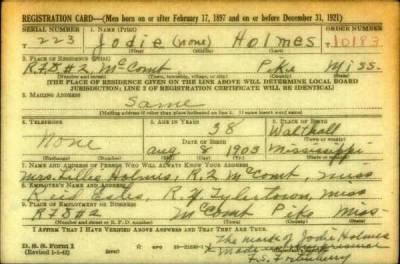 REGISTRATION CARD—(Men born on or after February 17, 1897 and on or before December 31, 1921)
SERIAL NUMBER 1. NAME (Print) ORDER NUMBER
223 Jodie (none) Holmes 10183
(First) (Middle) (Last)
2. PLACE OF RESIDENCE (Print)
RFD#2 McComb Pike Miss.
(Number and street) (Town, township, village, or city) (County) (State)
[THE PLACE OF RESIDENCE GIVEN ON THE LINE ABOVE WILL DETERMINE LOCAL BOARD
JURISDICTION; LINE 2 OF REGISTRATION CERTIFICATE WILL BE IDENTICAL]
3. MAILING ADDRESS
Same
(Mailing address if other than place indicated on line 2. If same insert word same)
4. TELEPHONE 5. AGE IN YEARS 6. PLACE OF BIRTH
38 Walthall
None DATE OF BIRTH
Aug 8 1903 Mississippi
(Exchange) (Number) (Mo.) (Day) (Yr.) (State or country)
7. NAME AND ADDRESS OF PERSON WHO WILL ALWAYS KNOW YOUR ADDRESS
Mrs. Holmes, R.2 McComb, Miss
8. EMPLOYER'S NAME AND ADDRESS
Tylertown, Miss
9. PLACE OF EMPLOYMENT OR BUSINESS
RFD#2 McComb Pike Miss
(Number and street or R. F. D. number) (Town) (County) (State)
I AFFIRM THAT I HAVE VERIFIED ABOVE ANSWERS AND THAT THEY ARE TRUE.
D. S. S. Form 1 The mark of Jodie Holmes
(Revised 1-1-42) X Made in my presence
F.S. Fortenberry